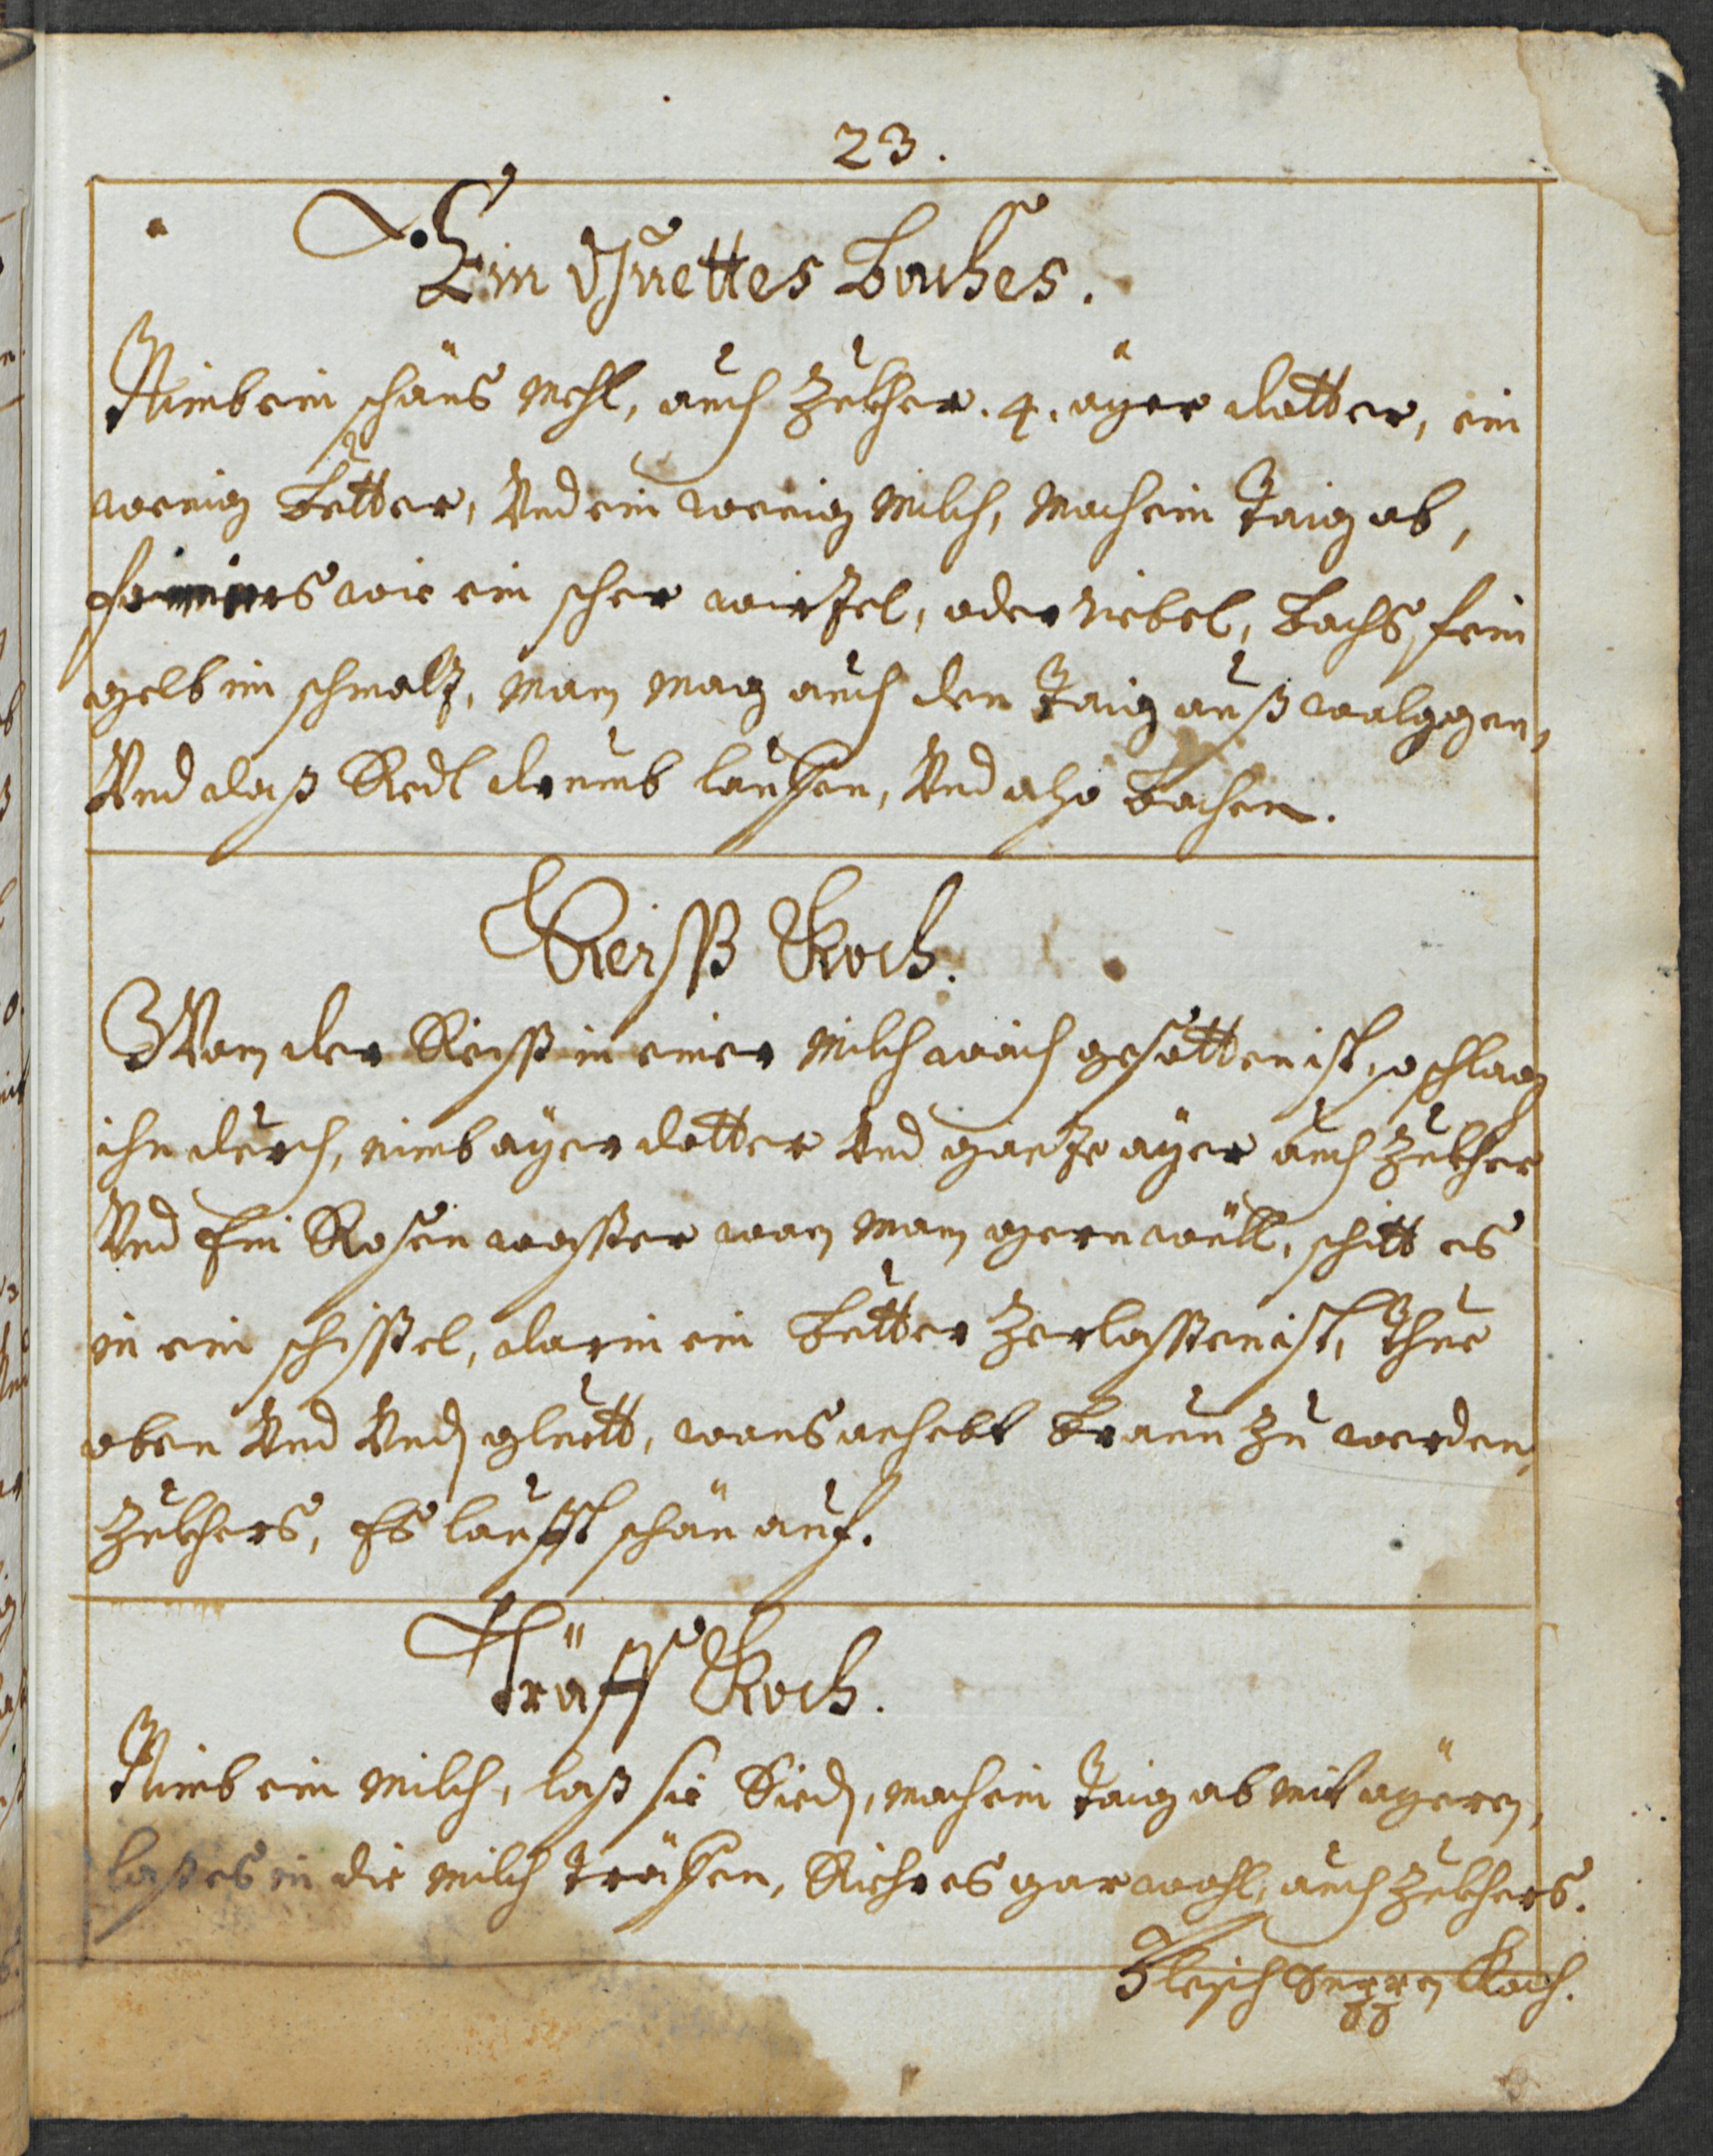 23.
Ein Guettes Baches.
Nimb ein schöns Mehl, auch Zukher. 4. ayer dotter, ein
wenig Butter, Und ein wenig Milch, Mach ein Taig ab,
wie ein scher wirfel, oder Nebel, Bachs fein
gelb im schmalz, Man Mag auch den Taig auß walggen,
Und daß Redl drumb lauffen, Und also Bachen.
Reiß Koch.
Wan der Reiß in einer Milch waich gesotten ist, so schlag
ihn durch, nimb ayer dotter Und ganze ayer auch Zukher
Und Ein Rosen wasser wan Man gern will, schitt es
in ein schissel, darin ein Butter Zerlassen ist, Thue
oben Und Undn gluett, wans anhebt Braun Zu werden,
Zukhers, Es laufft schön auf.
Träff Koch.
Nimb ein Milch, laß sie Siedn, mach ein Taig ab Mit ayern,
laß es in die Milch Träffen, Riehr es gar wohl, auch Zukhers.
Fleisch Koch.